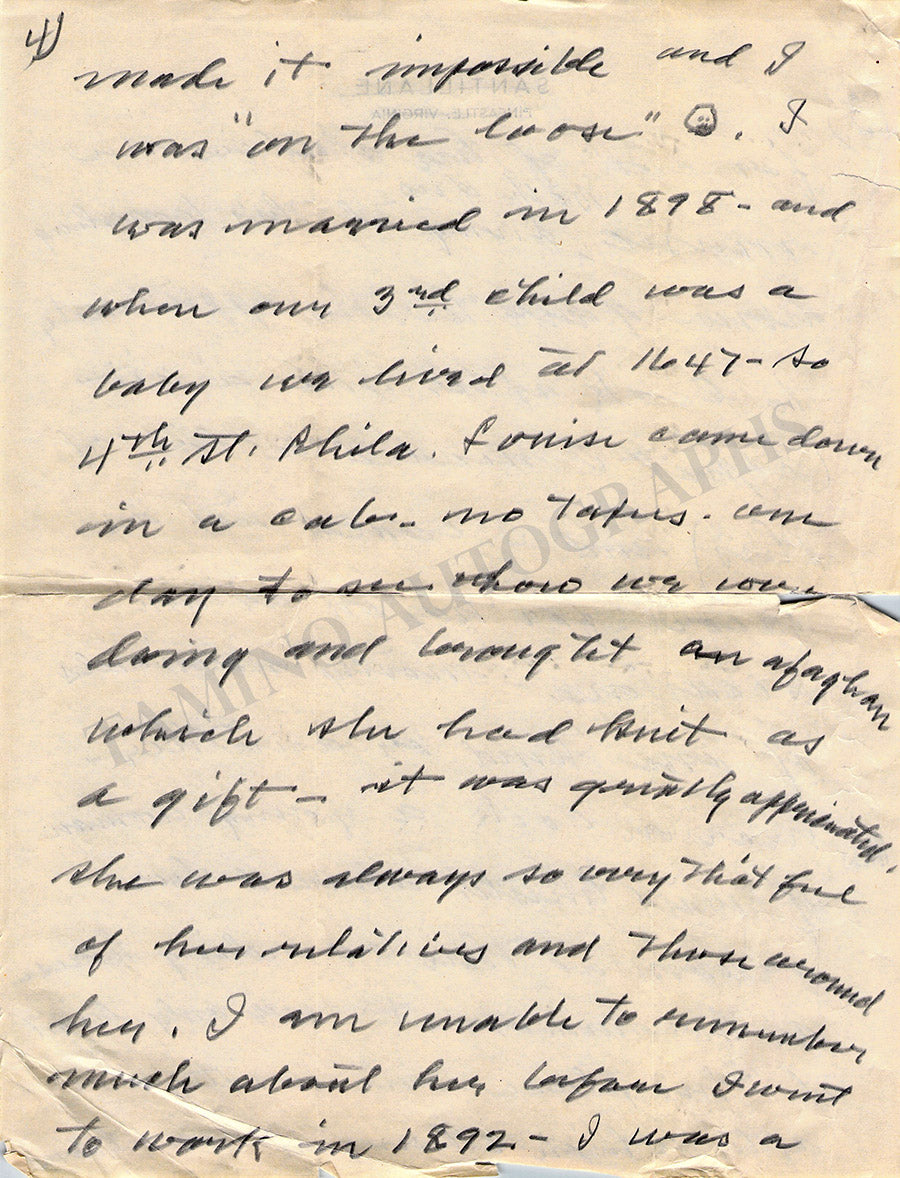 4)
made it impossible and I
was "on the loose" . I
was married in 1898 - and
when our 3rd child was a
baby we lived at 1647 - So
4th St. Phila. Louise came down
in a cab - no taxis - one
day to see how we were
doing and brought an afaghan
which she had knit as
a gift - it was greatly appreciated.
She was always so very that ful
of her relatives and those around
her. I am unable to remember
much about her before I went
to work in 1892 - I was a
SANTILLANE
FINCASTLE, VIRGINIA
TAMINO AUTOGRAPHS